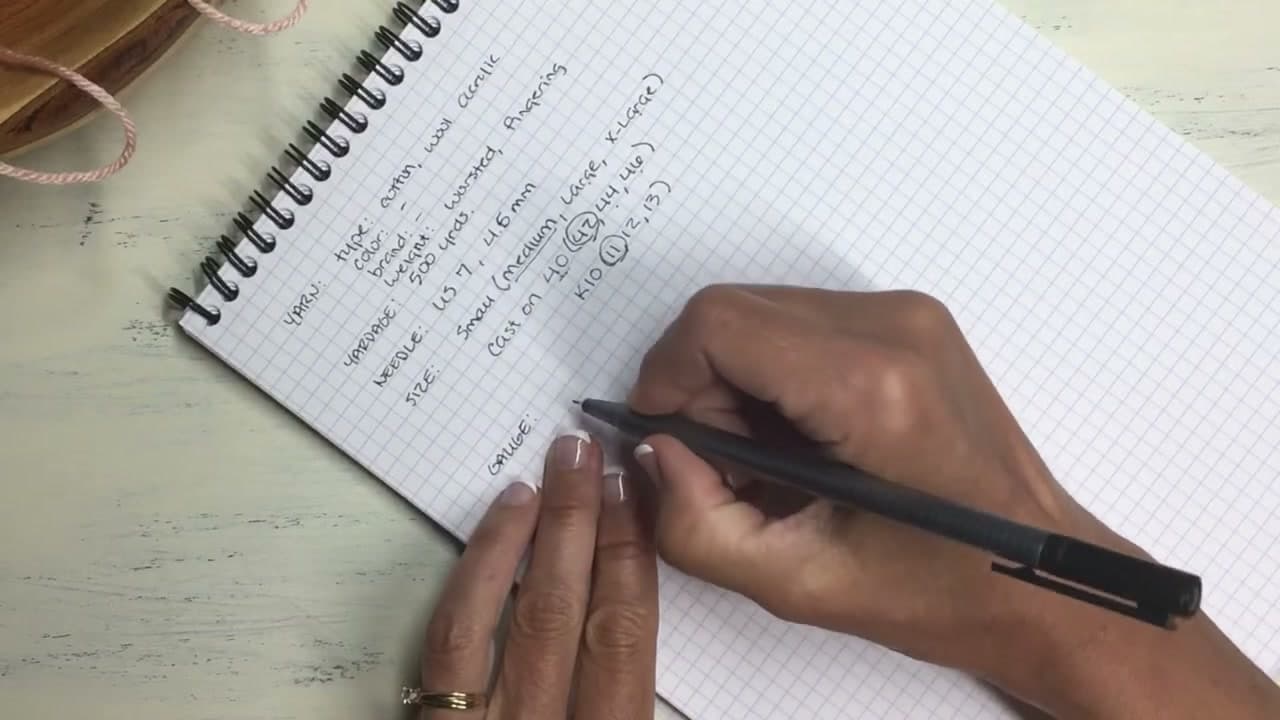 YARN: type: cotton, wool acrylic
color: -
brand: -
weight: worsted, fingering
YARDAGE: 500 yrds.
NEEDLE: US 7, 4.5 mm
SIZE: Small (medium, Large, X-Large)
Cast on 40 (42, 44, 46)
K10 (11, 12, 13)
GAUGE: